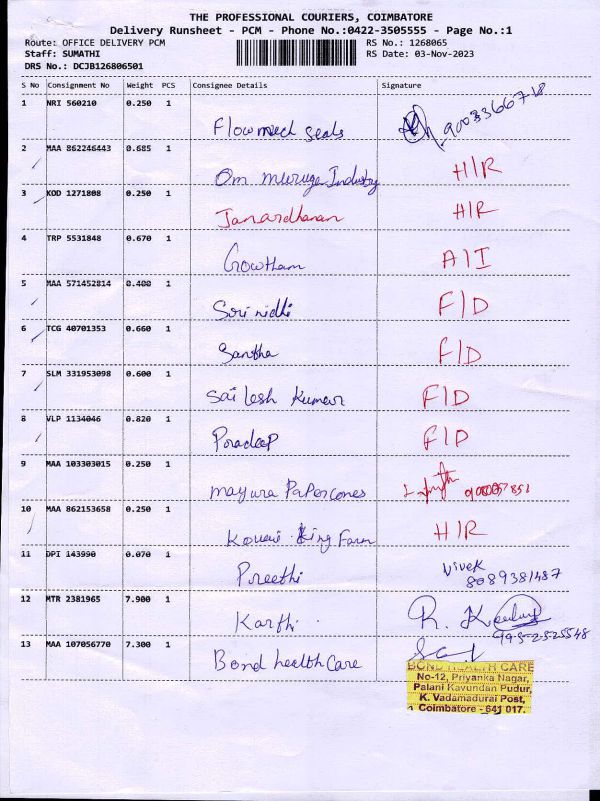 THE PROFESSIONAL COURIERS, COIMBATORE
Delivery Runsheet - PCM - Phone No.:0422-3505555 - Page No.:1
Route: OFFICE DELIVERY PCM RS No.: 1268065
Staff: SUMATHI RS Date: 03-Nov-2023
DRS No.: DCJB126806501
S No Consignment No Weight PCS Consignee Details Signature
1 NRI 560210 0.250 1 Flowmech seals
2 MAA 862246443 0.685 1 Om Muruga Industry H/R
3 KOD 1271808 0.250 1 Janardhanan H/R
4 TRP 5531848 0.670 1 Gowtham A/I
5 MAA 571452814 0.400 1 Sri nidhi F/D
6 TCG 40701353 0.660 1 Santha F/D
7 SLM 331953098 0.600 1 Sailesh Kumar F/D
8 VLP 1134046 0.820 1 Pradeep F/D
9 MAA 103303015 0.250 1 Mayura Papercones
10 MAA 862153658 0.250 1 King Farm H/R
11 DPI 143990 0.070 1 Preethi Vivek
8089381487
12 MTR 2381965 7.900 1 Karthi
13 MAA 107056770 7.300 1 Bond health Care
BOND HEALTH CARE
No-12, Priyanka Nagar,
Palani Kavundan Pudur,
K. Vadamadurai Post,
Coimbatore - 641 017.